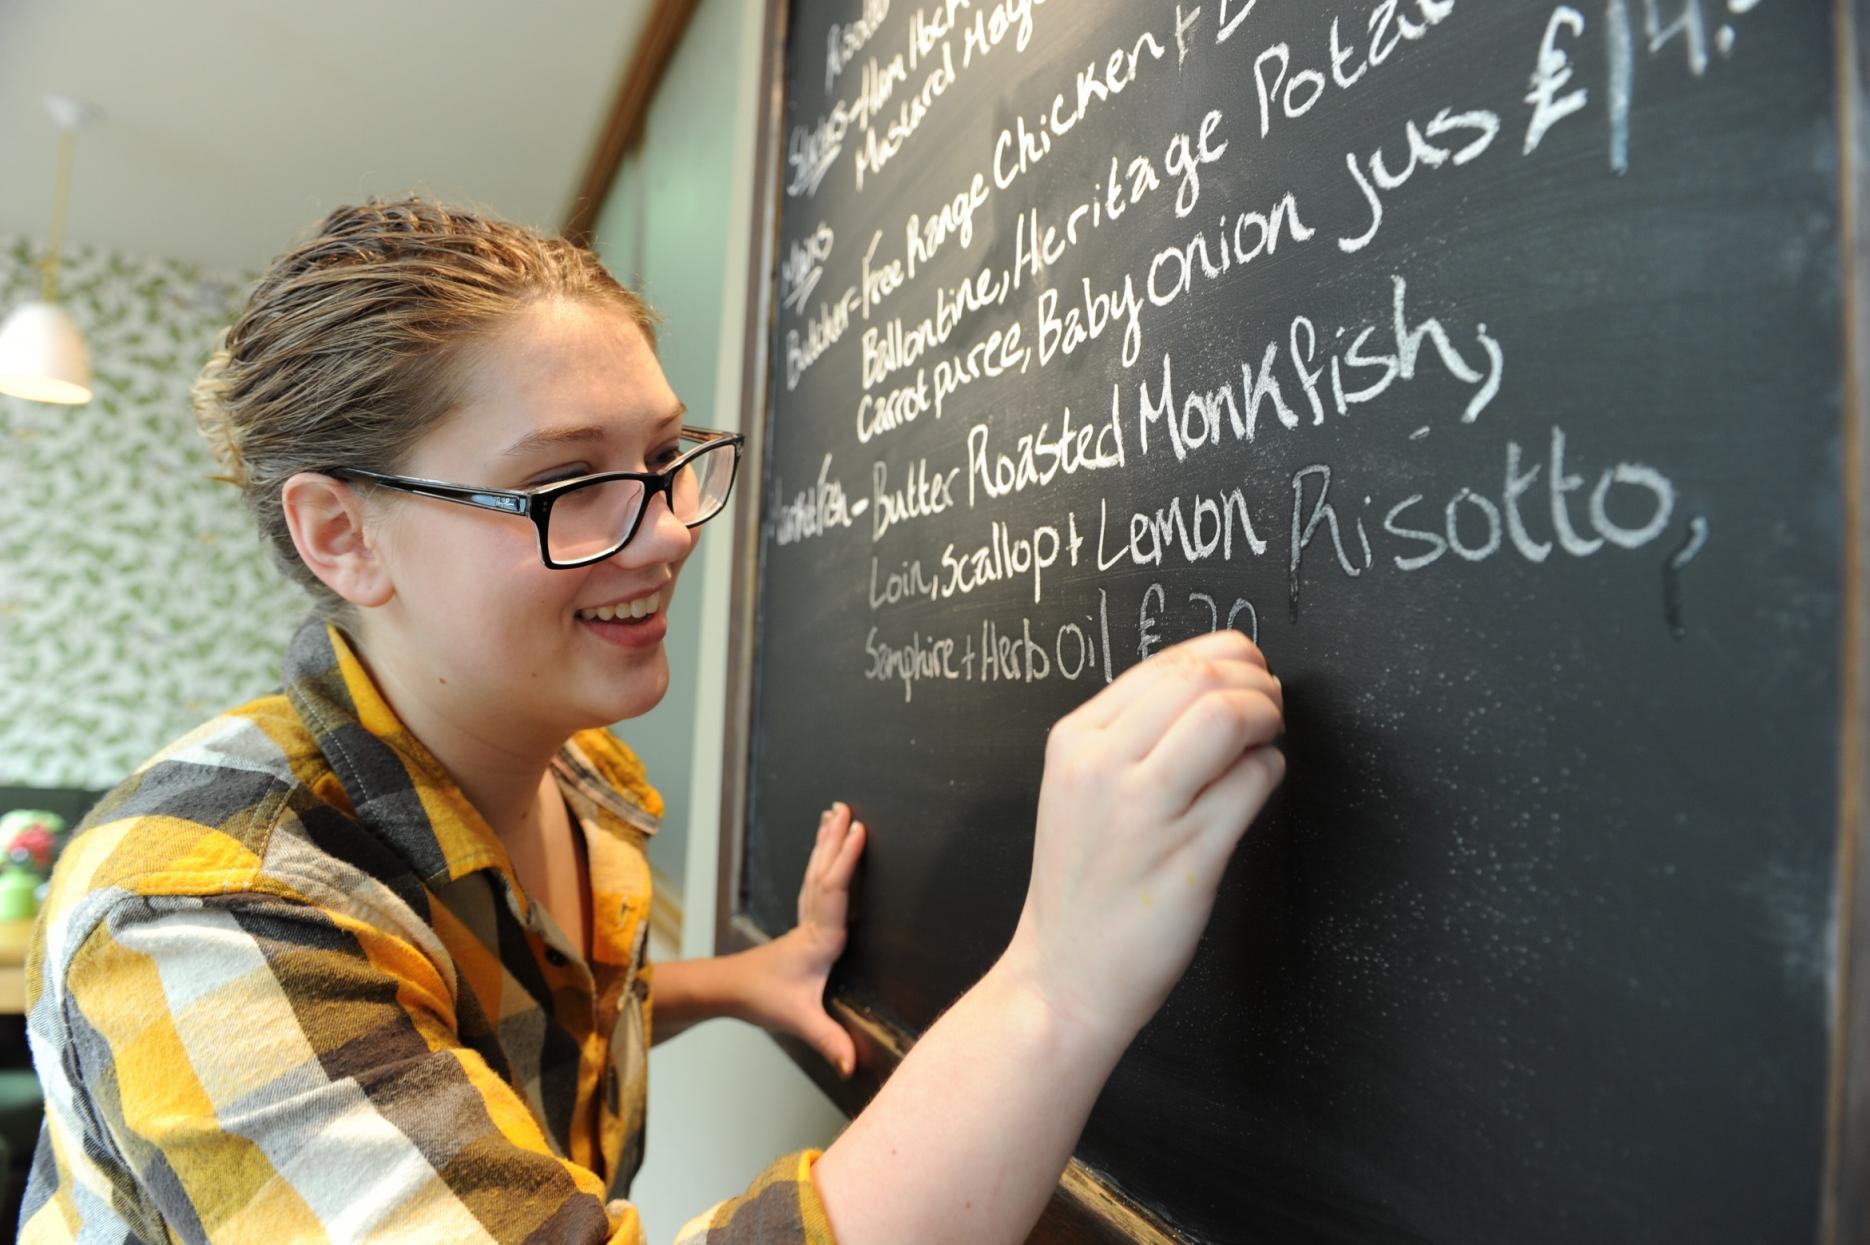 Risotto
Starters - Ham Hock
Mustard Mayo
Mains
Butcher - Free Range Chicken +
Ballontine, Heritage Potato
Carrot puree, Baby onion jus £14.
Butter Roasted Monkfish,
Loin, Scallop + Lemon Risotto,
Samphire + Herb Oil £20